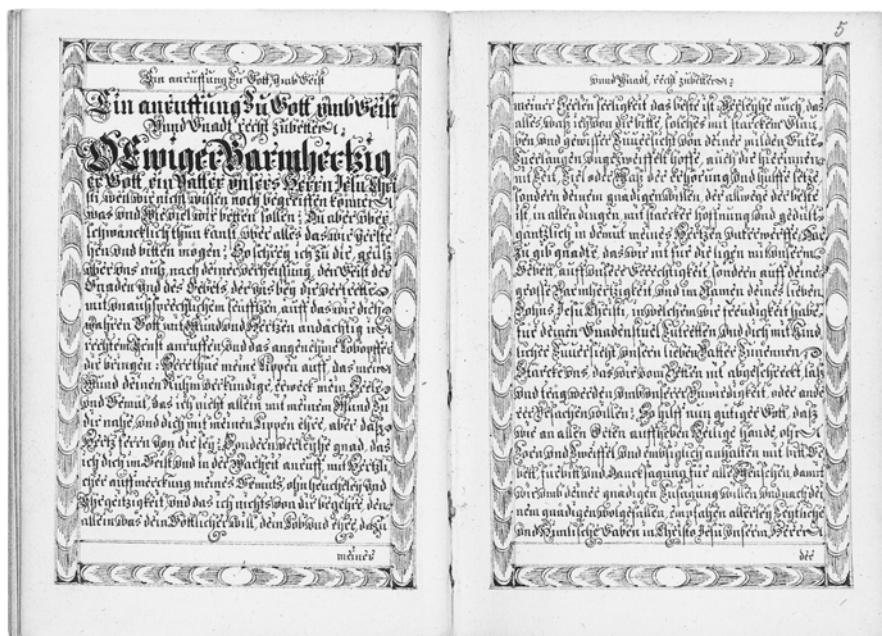 Ein anruffung zu Gott, umb Geist
Ein anruffung Zu Gott umb Geist
Vnnd Gnadt, recht zubetten:
O Ewiger Barmhertzig
er Gott, ein Vatter vnsers Herrn Jesu Chri
sti, weil wir nicht wissen noch begreiffen können
was vnd wie viel wir betten sollen: Du aber vber
schwäncklich thun kanst, vber alles das wir verste
hen vnd bitten mögen: So schrey ich zu dir, geüß
vber vns auß, nach deiner verheissung, den Geist der
Gnaden vnd des Gebets, der vns bey dir vertrette
mit vnaußsprechlichem seufftzen, auff das wir dich
wahren Gott mit Mund vnd Hertzen andächtig in
rechtem Ernst anruffen, vnd das angenehme Lobopffer
dir bringen: Herr thue meine Lippen auff, das mein
Mund deinen Ruhm verkündige, erweck mein Seele
vnd Gemüt, das ich nicht allein mit meinem Mund zu
dir nahe, vnd dich mit meinen Lippen ehre, aber das
Hertz ferren von dir sey: Sondern verleyhe gnad, das
ich dich im Geist vnd in der Warheit anruff, mit Hertzli
cher auffmerckung meines Gemüts, ohn heucheley vnd
Ehrgeitzigkeit, vnd das ich nichts von dir begehre, den
allein was dein Göttlicher will, dein Lob vnd ehre, dazu
meiner
5
vnnd Gnadt, recht zubetten:
meiner Seelen seeligkeit das beste ist. Verleyhe auch, das
alles, was ich von dir bitte, solches mit starckem Glau
ben vnd gewisser Zuuersicht von deiner milden Güte
Zuerlangen vngezweiffelt hoffe, auch dir hierinnen
nit Zeit, Ziel oder Maß der erhörung vnd hülffe setze,
sondern deinem gnädigen willen, der allwege der beste
ist, in allen dingen, mit starcker hoffnung vnd gedult
gäntzlich in demut meines Hertzen vnterwerffe. Dar
zu gib gnade, das wir nit für dir ligen mit vnserm
Gebett, auff vnsere Gerechtigkeit, sondern auff deine
grosse Barmhertzigkeit, vnd im Namen deines lieben
Sohns Jesu Christi, in welchem wir freüdigkeit habe
für deinen Gnadenstuel Zutretten, vnd dich mit Kind
licher Zuuersicht vnsern lieben Vatter Zunennen
Stärcke vns, das wir vom Betten nit abgeschreckt, laß
vnd treg werden, vmb vnserer Vnwirdigkeit, oder ande
rer Vrsachen willen: So hilff nun gütiger Gott, daß
wir an allen Orten auffheben Heilige hände, ohn
Zorn vnd Zweiffel, vnd embsiglich anhalten mit bitt Ge
bett, fürbitt vnd Dancksagung für alle Menschen, damit
wir vmb deiner gnädigen Zusagung willen, vnd nach dei
nem gnädigen wolgefallen, empfahen allerley Zeytliche
vnd Himlische Gaben in Christo Jesu vnserm Herrn
der